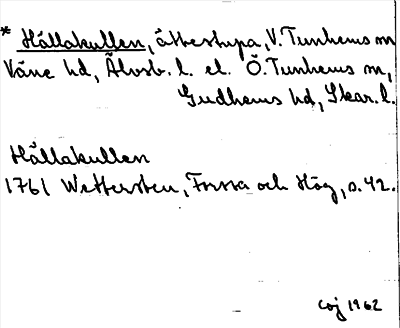 * Hällakullen, ättestupa, V. Tunhems sn
Väne hd, Älvsb. l. el. Ö. Tunhems sn,
Gudhems hd, Skar. l.
Hällakullen
1761 Wettersten, Forssa och Hög, s. 42.
Coj 1962